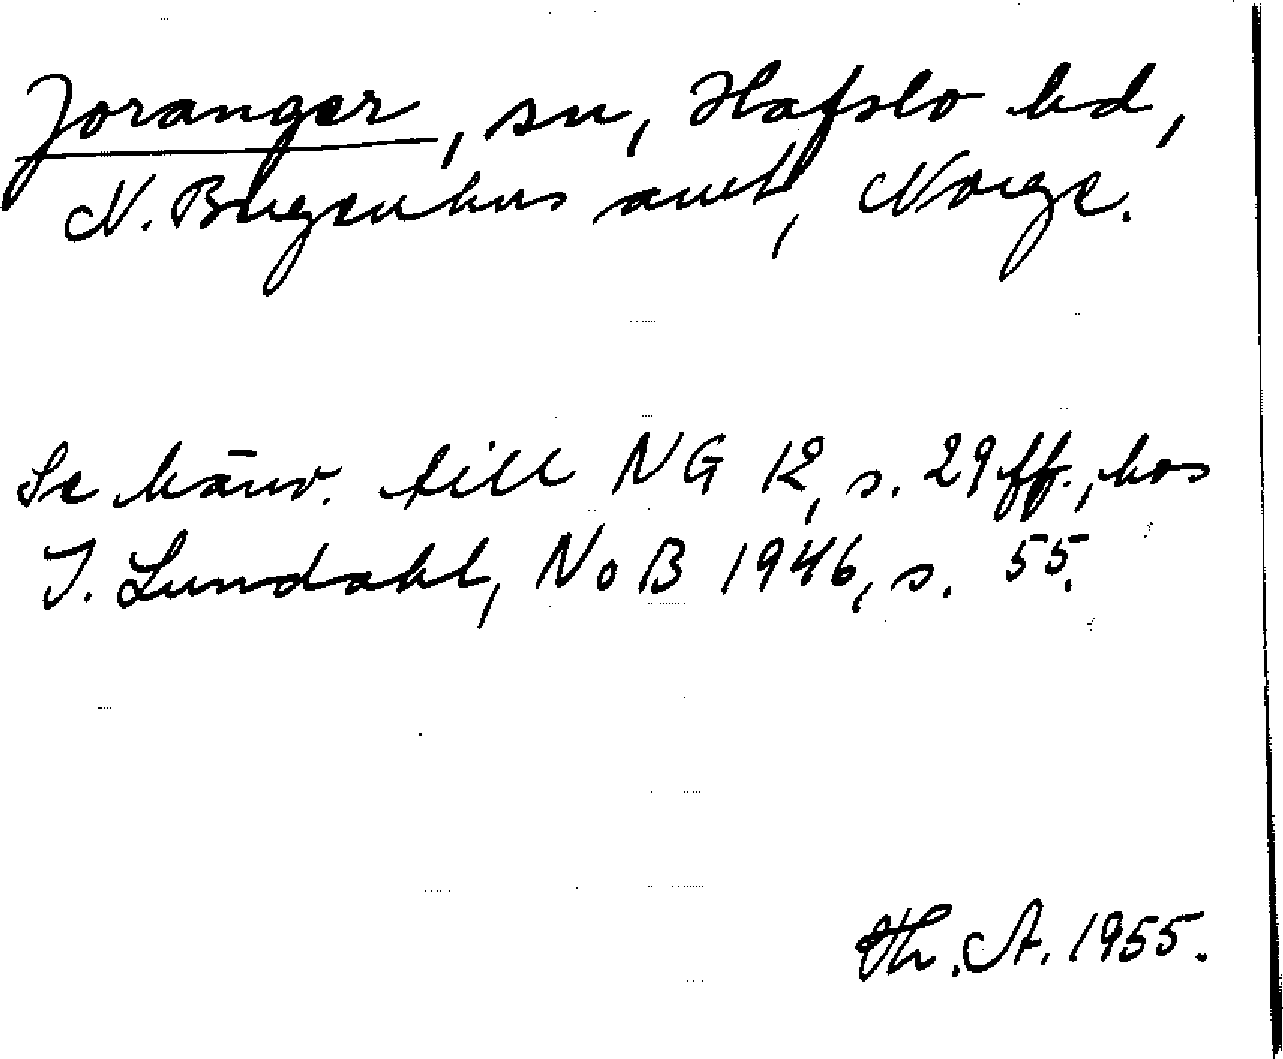 Joranger, sn, Hafslo hd,
N. Bergenhus amt, Norge.
Se hänv. till NG 12, s. 29 ff., hos
I. Lundahl, NoB 1946, s. 55.
Th. A. 1955.